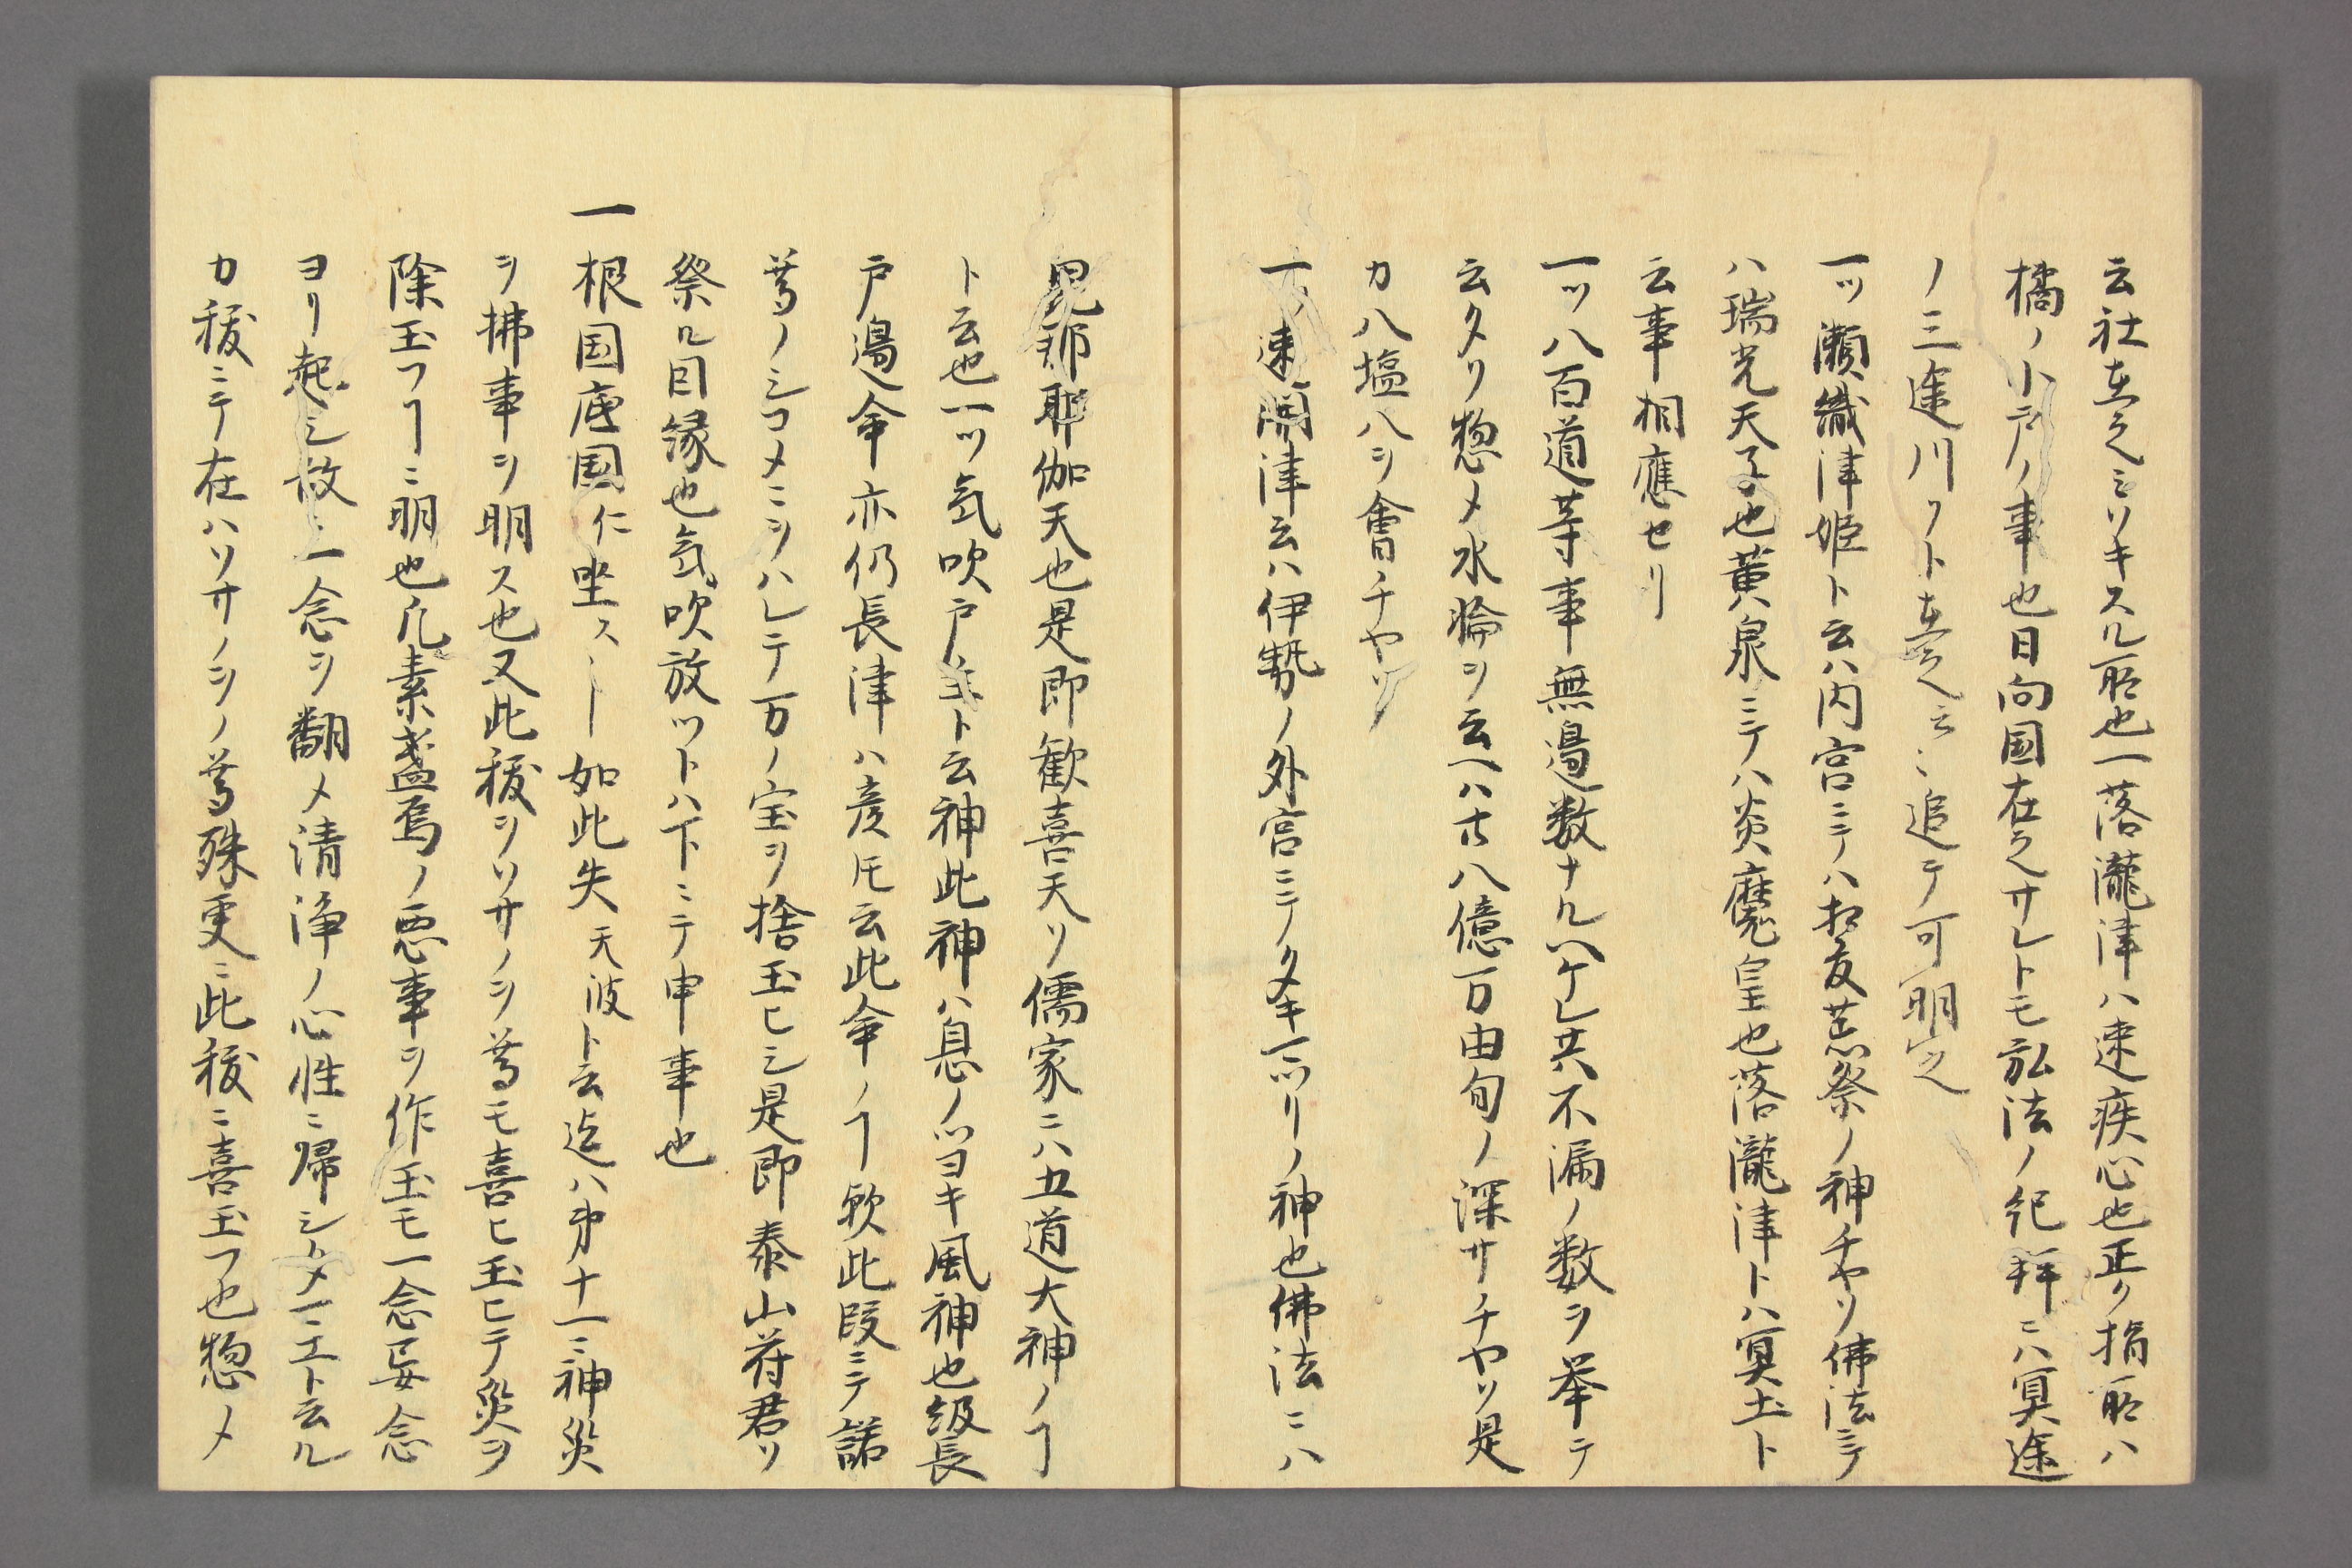 云社在之ミソキスル所也一落瀧津ハ速疾心也正ク指所ハ
橘ノ小戸ノ事也日向国在之サレトモ弘法ノ記釋ニハ冥途
ノ三途川ト在之云々追テ可明之
一ツ瀬織津姫ト云ハ内宮ニテハ荒祭ノ神チヤソ佛法ニテ
ハ瑞光天子也黄泉ニテハ炎魔皇也落瀧津トハ冥土ト
云事相應セリ
一ツ八百道等事無邊数ナルヘケレ共不漏ノ数ヲ挙テ
云タリ惣メ水輪ヲ云ヘハ八億万由旬ノ深サチヤソ是
カ八塩八ヲ會チヤソ
一ツ速開津云ハ伊勢ノ外宮ニテノタキマツリノ神也佛法ニハ
毘那耶伽天也是即歓喜天ソ儒家ニハ五道大神ノヿ
ト云也一ツ気吹戸主ト云神此神ハ息ノツヨキ風神也級長
戸邊命亦仍長津ハ彦トモ云此命ノヿ歟此段ニテ諾
尊ノシコメニヲハレテ万ノ宝ヲ捨玉ヒシ是即泰山府君ソ
祭ル因縁也気吹放ツトハ下ニテ申事也
一根国底国仁坐スト如此失天波ト云迄ハ第十一ニ神災
ヲ拂事ヲ明ス也又此祓ヲソサノヲノ尊モ喜ヒ玉ヒテ災ヲ
除玉フヿニ明也凡素盞烏ノ悪事ヲ作玉モ一念妄念
ヨリ起シ故ニ一念ヲ翻メ清浄ノ心性ニ帰シタマエト云ル
カ祓ニテ在ハソサノヲノ尊殊更ニ此祓ニ喜玉フ也惣メ